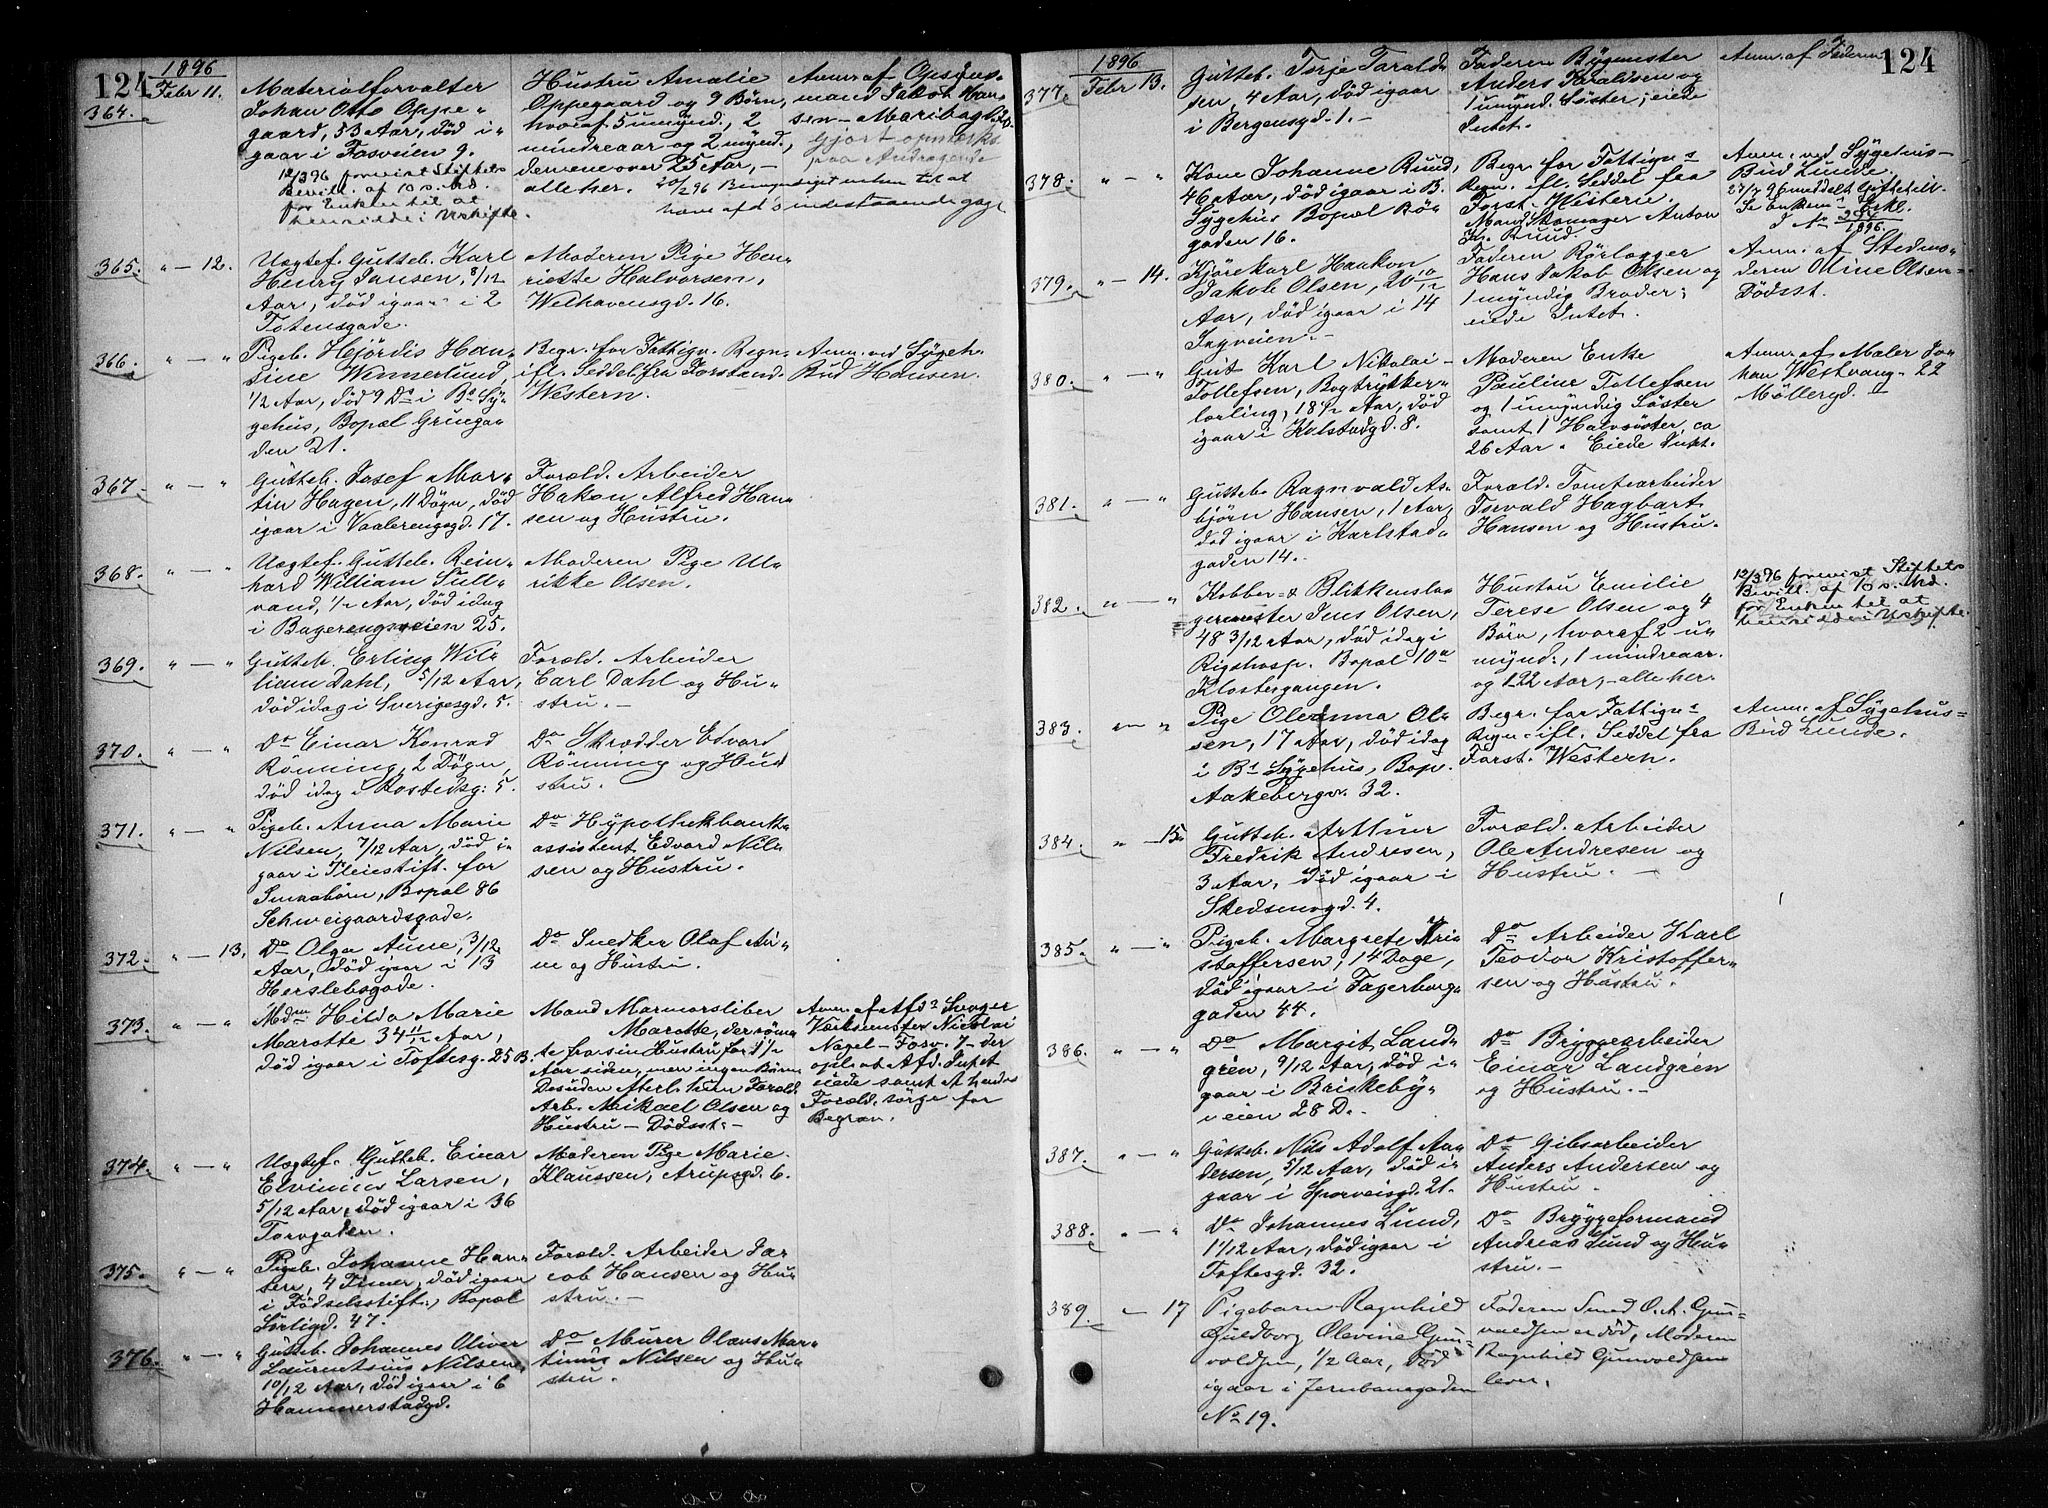 124
1896
364.
Febr 11.
Materialforvalter
Johan Otto Oppe-
gaard, 53 Aar, død i-
gaar i Fosveien 9.
12/3 96 forevist Stiftets
Bevill. af 10 s. Md.
for Enken til at
hensidde i Uskifte.
Hustru Amalie
Oppegaard og 9 Børn,
hvoraf 5 umynd., 2
mindreaar og 2 mynd.,
derene over 25 Aar, -
alle her.
Anm. af Opsyns-
mand Jakob Han-
sen - Maribogd. 20.
Gjort opmerks.
paa Andragende
365.
" - 12.
Uægtef. Gutteb. Karl
Henry Jansen, 8/12
Aar, død igaar i 2
Totensgade.
Moderen Pige Hen-
riette Halvorsen,
Welhavensgd. 16.
366.
" - "
Pigeb. Hjørdis Han-
sine Wennerlund
1/2 Aar, død 9 Do i Bs Sy-
gehus, Bopæl Grünga-
den 21.
Begr. for Fattigv. Regn.
ifl. Seddel fra Forstand.
Western.
Anm. ved Sygeh.
Bud Hansen.
367
" - "
Gutteb. Josef Mar-
tin Hagen, 11 Døgn, død
igaar i Vaalerengsgd. 17.
Foræld. Arbeider
Hakon Alfred Han-
sen og Hustru.
368.
" - "
Uægtef. Gutteb. Rein-
hard William Tull-
rand, 1/2 Aar, død idag
i Bagerengsveien 25.
Moderen Pige Ul-
rikke Olsen.
369.
" - "
Gutteb. Erling Wil-
liam Dahl, 5/12 Aar,
død idag i Sverigesgd. 5.
Foræld. Arbeider
Carl Dahl og Hu-
stru. -
370.
" - "
Do Einar Konrad
Rönning, 2 Døgn,
død idag i Rostedsg: 5.
Do Skrædder Edvard
Rönning og Hu-
stru.
371.
" - "
Pigeb. Anna Marie
Nilsen, 7/12 Aar, død i-
gaar i Pleiestift. for
Smaabørn, Bopæl 86
Schweigaardsgade.
Do Hypothekbank-
assistent Edvard Nil-
sen og Hustru.
372.
" - 13.
Do Olga Aune, 3/12
Aar, død igaar i 13
Herslebsgade.
Do Snedker Olaf Au-
ne og Hustru.
373.
" - "
Mdm Hilda Marie
Marotte 34 11/12 Aar,
død igaar i Toftesg. 25 B.
Mand Marmorsliber
Marotte, der røm-
te fra sin Hustru for 1 1/2
Aar siden, men ingen Børn
Desuden efterl. hun Foræld.
Arb. Mikael Olsen og
Hustru - Dødsst. -
Anm. af Afds Svoger
Værksmester Nicolai
Nagel - Fosv. 7 - der
opl. at Afd. Intet
eiede samt at hendes
Foræld. sørge for
Begrav.
374.
" - "
Uægtef. Gutteb. Einar
Elvinius Larsen,
5/12 Aar, død igaar i 36
Torvgaden.
Moderen Pige Marie
Klaussen, Arupsgd. 6.
375.
" - "
Pigeb. Johanne Han-
sen, 4 Timer, død igaar
i Fødselsstift., Bopæl
Sørligd. 47.
Foræld. Arbeider Ja-
cob Hansen og Hu-
stru. -
376.
" - "
Gutteb. Johannes Oliver
Laurentsius Nilsen,
10/12 Aar, død igaar i 6
Hammerstadgd.
Do Murer Olaus Mar-
tinius Nilsen og Hu-
stru.
124
1896
377.
Febr 13.
Gutteb. Terje Tarald-
sen, 4 Aar, død igaar
i Bergensgd. 1. -
Faderen Bygmester
Anders Taraldsen og
1 umynd. Søster; eiede
Intet.
Anm. af Faderen
378.
" - "
Kone Johanne Ruud,
46 Aar, død igaar i B.
Sygehus Bopæl Bö-
gaden 16.
Begr. for Fattigvs
Regn. ifl. Seddel fra
Forst. Western.
Mand Skomager Anton
Kr. Ruud.
Anm. ved Sygehus-
Bud Lunde.
27/7 96 meddelt Giftetill.
Se Enkem s Erkl.
J No 294/1896.
379.
" - 14.
Kjørekarl Haakon
Jakob Olsen, 20 10/12
Aar, død igaar i 14
Ingveien. -
Faderen Rørlægger
Hans Jakob Olsen og
1 myndig Broder;
eiede Intet.
Anm. af Stedmo-
deren Oline Olsen -
Dødsst.
380.
" - "
Gut Karl Nikolai
Tollefsen, Bogtrykker-
lærling, 18 1/2 Aar, død
igaar i Kolstadgd. 8.
Moderen Enke
Pauline Tollefsen
og 1 umyndig Søster
samt 1 Halvsøster, ca
26 Aar. Eiede Intet.
Anm. af Maler Jo-
han Westvang - 22
Möllergd. I
381.
" - "
Gutteb. Ragnvald As-
bjørn Hansen, 1 Aar,
død igaar i Karlstad-
gaden 14. -
Foræld. Tomtearbeider
Torvald Hagbart
Hansen og Hustru.
382.
" - "
Kobber- & Blikkensla-
germester Jens Olsen,
48 3/12 Aar, død idag i
Rigshosp. Bopæl 10a
Klostergangen.
Hustru Emilie
Terese Olsen og 4
Børn, hvoraf 2 u-
mynd:, 1 mindreaar.
og 1 22 Aar, - alle her.
12/3 96 forevist Stiftets
Bevill. af 10 s. Md.
for Enken til at
hensidde i Uskifte.
383.
" - "
Pige Oleanna Ol-
sen, 17 Aar, død idag
i Bs Sygehus, Bop.
Aakebergv. 32.
Begr. for Fattigvs
Regn. ifl. Seddel fra
Forst. Western.
Anm. af Sygehus-
Bud Lunde.
384.
" - 15.
Gutteb. Arthur
Fredrik Andresen,
3 Aar, død igaar i
Stedsenogd. 4.
Foræld. Arbeider
Ole Andresen og
Hustru. -
385.
" - "
Pigeb. Margrete Kri-
stoffersen, 14 Dage,
død igaar i Fagerborg-
gaden 44.
Do Arbeider Karl
Teodor Kristoffer-
sen og Hustru.
386.
" - "
Do Margit Land-
gren, 9/12 Aar, død i-
gaar i Briskeby-
veien 28 D. -
Do Bryggearbeider
Einar Landgren
og Hustru. -
387.
" - "
Gutteb. Nils Adolf An-
dersen, 5/12 Aar, død i-
gaar i Sporveisgd. 21.
Do Gibsarbeider
Anders Andersen og
Hustru.
388.
" - "
Do Johannes Lund,
11/12 Aar, død igaar i
Toftesgd. 32.
Do Bryggeformand
Andreas Lund og Hu-
stru. -
389.
" - 17
Pigebarn Ragnhild
Guldborg Olevine Gun-
valdsen, 1/2 Aar, død
igaar i Jernbanegaden
No 19.
Faderen Smed O. A. Gun-
valdsen er død, Moderen
Ragnhild Gunvaldsen
lever.